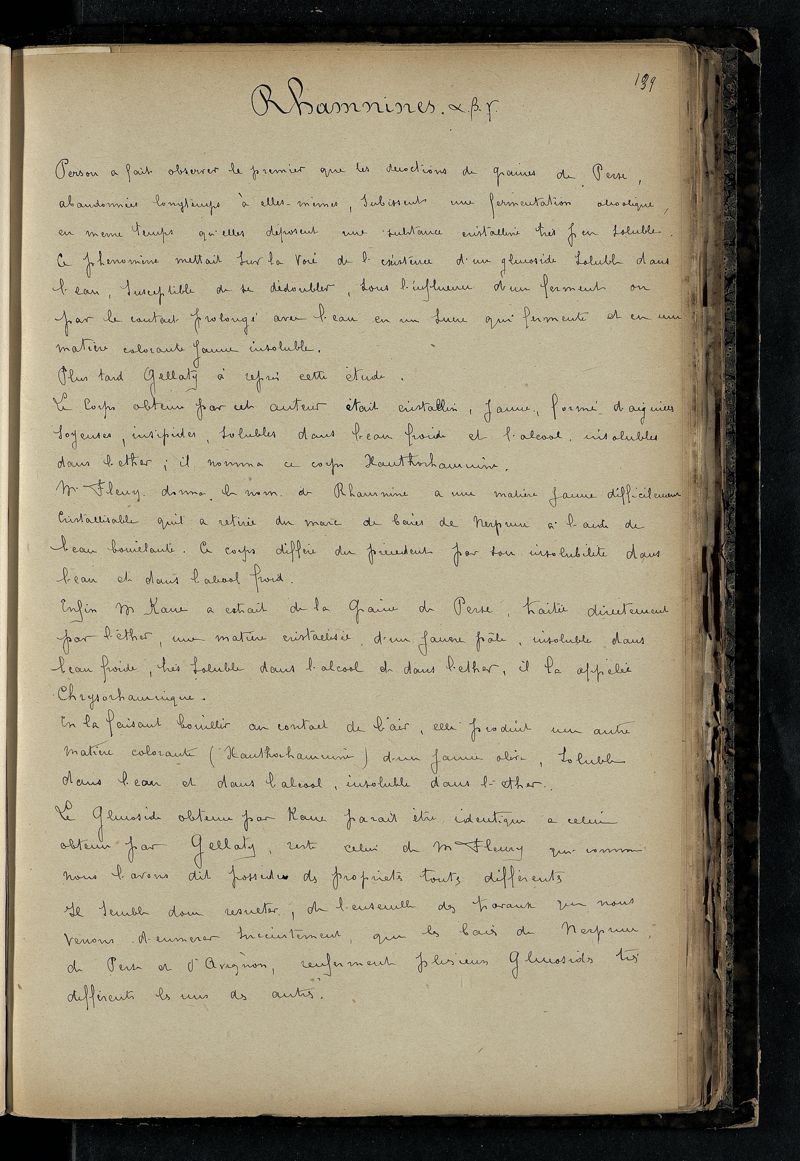 139
Rhamnines. α. β. γ.
Person a fait observer le premier que les décoctions de graines de Perse,
abandonnées longtemps à elles-mêmes, subissent une fermentation alcoolique,
en même temps qu'elles déposent une substance cristalline très peu soluble.
Ce phénomène mettait sur la voie de l'existence d'un glucoside soluble dans
l'eau, susceptible de se dédoubler, sous l'influence d'un ferment ou
par le contact prolongé avec l'eau en un sucre qui fermente et en une
matière colorante jaune insoluble.
Plus tard Gellaty a repris cette étude.
Le Corps obtenu par cet auteur était cristallin, jaune, formé d'aiguilles
soyeuses, insipides, solubles dans l'eau froide et l'alcool, insolubles
dans l'ether; il nomma ce corps Xanthorhamnine.
Mr Fleury donna le nom de Rhamnine a une matière jaune difficilement
cristallisable qu'il a retirée du marc de baies de Nerprun à l'aide de
l'eau bouillante. Ce corps diffère du précédent par son insolubilité dans
l'eau et dans l'alcool froid.
Enfin Mr Kane a extrait de la Graine de Perse, traitée directement
par l'éther, une matière cristallisée, d'un jaune pâle, insoluble dans
l'eau froide, très soluble dans l'alcool et dans l'ether, il l'a appelée
Chrysorhamnique.
En la faisant bouillir au contact de l'air, elle produit une autre
matière colorante (Xanthorhamnine) d'un jaune olive, soluble
dans l'eau et dans l'alcool, insoluble dans l'ether.
Le Glucoside obtenu par Kane parait être identique a celui
obtenu par Gellaty, reste celui de Mr Fleury qui comme
nous l'avons dit possède des propriétés toutes différentes
Il semble donc résulter, de l'ensemble des travaux que nous
venons d'enumerer succintement, que les baies de Nerprun,
de Perse et d'Avignon, renferment plusieurs Glucosides très
différents les uns des autres.